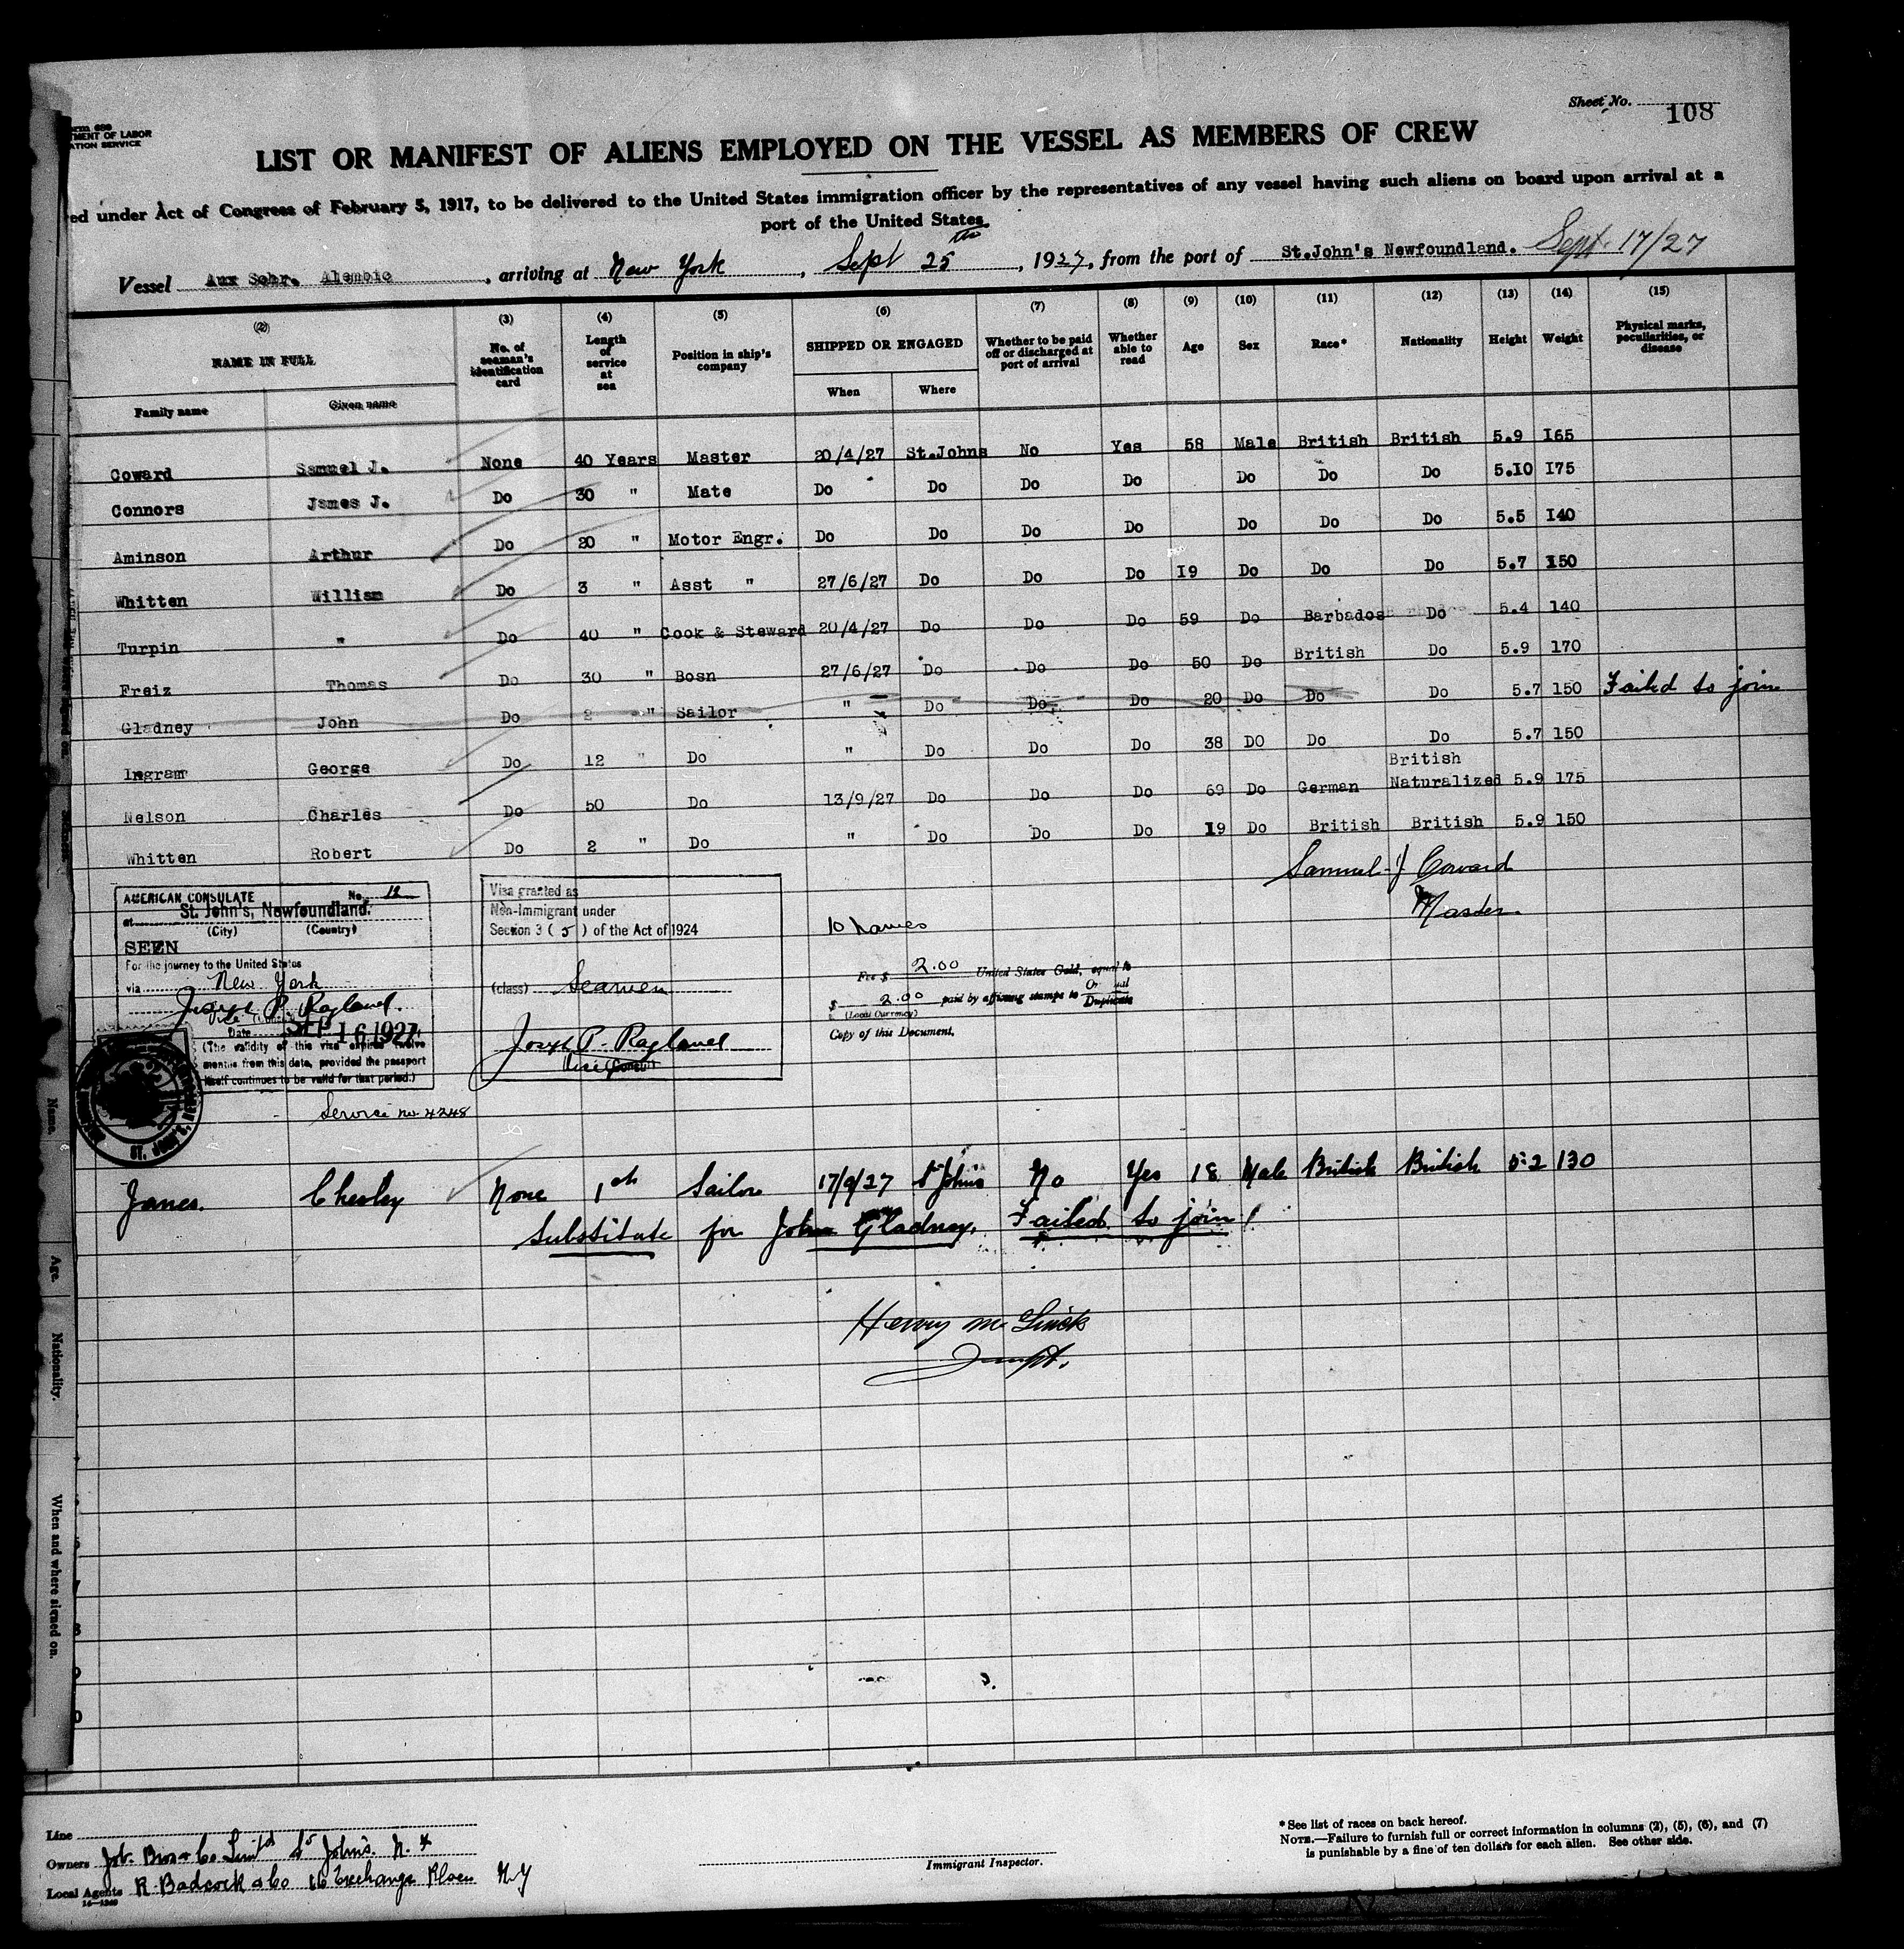 Sheet No. 108
Form 680
TMENT OF LABOR
ATION SERVICE
LIST OR MANIFEST OF ALIENS EMPLOYED ON THE VESSEL AS MEMBERS OF CREW
ed under Act of Congress of February 5, 1917, to be delivered to the United States immigration officer by the representatives of any vessel having such aliens on board upon arrival at a
port of the United States.
Vessel Aux Schr. Alembic, arriving at New York, Sept 25th, 1927, from the port of St.John's Newfoundland. Sept. 17/27
(2) (3) (4) (5) (6) (7) (8) (9) (10) (11) (12) (13) (14) (15)
NAME IN FULL No. of seaman's identification card Length of service at sea Position in ship's company SHIPPED OR ENGAGED Whether to be paid off or discharged at port of arrival Whether able to read Age Sex Race* Nationality Height Weight Physical marks, peculiarities, or disease
Family name Given name When Where
Coward Samuel J. None 40 Years Master 20/4/27 St.Johns No Yes 58 Male British British 5.9 165
Connors James J. Do 30 " Mate Do Do Do Do Do Do Do 5.10 175
Aminson Arthur Do 20 " Motor Engr. Do Do Do Do Do Do Do 5.5 140
Whitten William Do 3 " Asst " 27/6/27 Do Do Do 19 Do Do Do 5.7 150
Turpin " Do 40 " Cook & Steward 20/4/27 Do Do Do 59 Do Barbados Do 5.4 140
Freiz Thomas Do 30 " Bosn 27/6/27 Do Do Do 50 Do British Do 5.9 170
Gladney John Do 2 " Sailor " Do Do Do 20 Do Do Do 5.7 150 Failed to join
Ingram George Do 12 " Do " Do Do Do 38 DO Do Do 5.7 150
Nelson Charles Do 50 Do 13/9/27 Do Do Do 69 Do German British Naturalized 5.9 175
Whitten Robert Do 2 " Do " Do Do Do 19 Do British British 5.9 150
Samuel J Coward
Master.
AMERICAN CONSULATE No. 12
at St. John's, Newfoundland.
(City) (Country)
SEEN
For the journey to the United States
via New York
Joseph P. Ragland.
Vice Consul
Date SEP 16 1927
(The validity of this visa expires twelve
months from this date, provided the passport
itself continues to be valid for that period.)
ST. JOHN'S,
Service no 4248
Visa granted as
Non-Immigrant under
Section 3 (5) of the Act of 1924
(class) Seamen
Joseph P. Ragland
Vice Consul
10 names
Fee $ 2.00 United States Gold, equal to
$ 2.00 paid by affixing stamps to Original Duplicate
(Local Currency)
Copy of this Document.
Janes. Chesley None 1st Sailor 17/9/27 St Johns No Yes 18 Male British British 5.2 130
Substitute for John Gladney. Failed to join!
Line
Owners Job Bros & Co Limtd St Johns. N.
Local Agents R. Badcock & Co 16 Exchange Place N.Y
16—1240
Immigrant Inspector.
* See list of races on back hereof.
NOTE.—Failure to furnish full or correct information in columns (2), (5), (6), and (7)
is punishable by a fine of ten dollars for each alien. See other side.
Name.
Age.
Nationality.
When and where signed on.